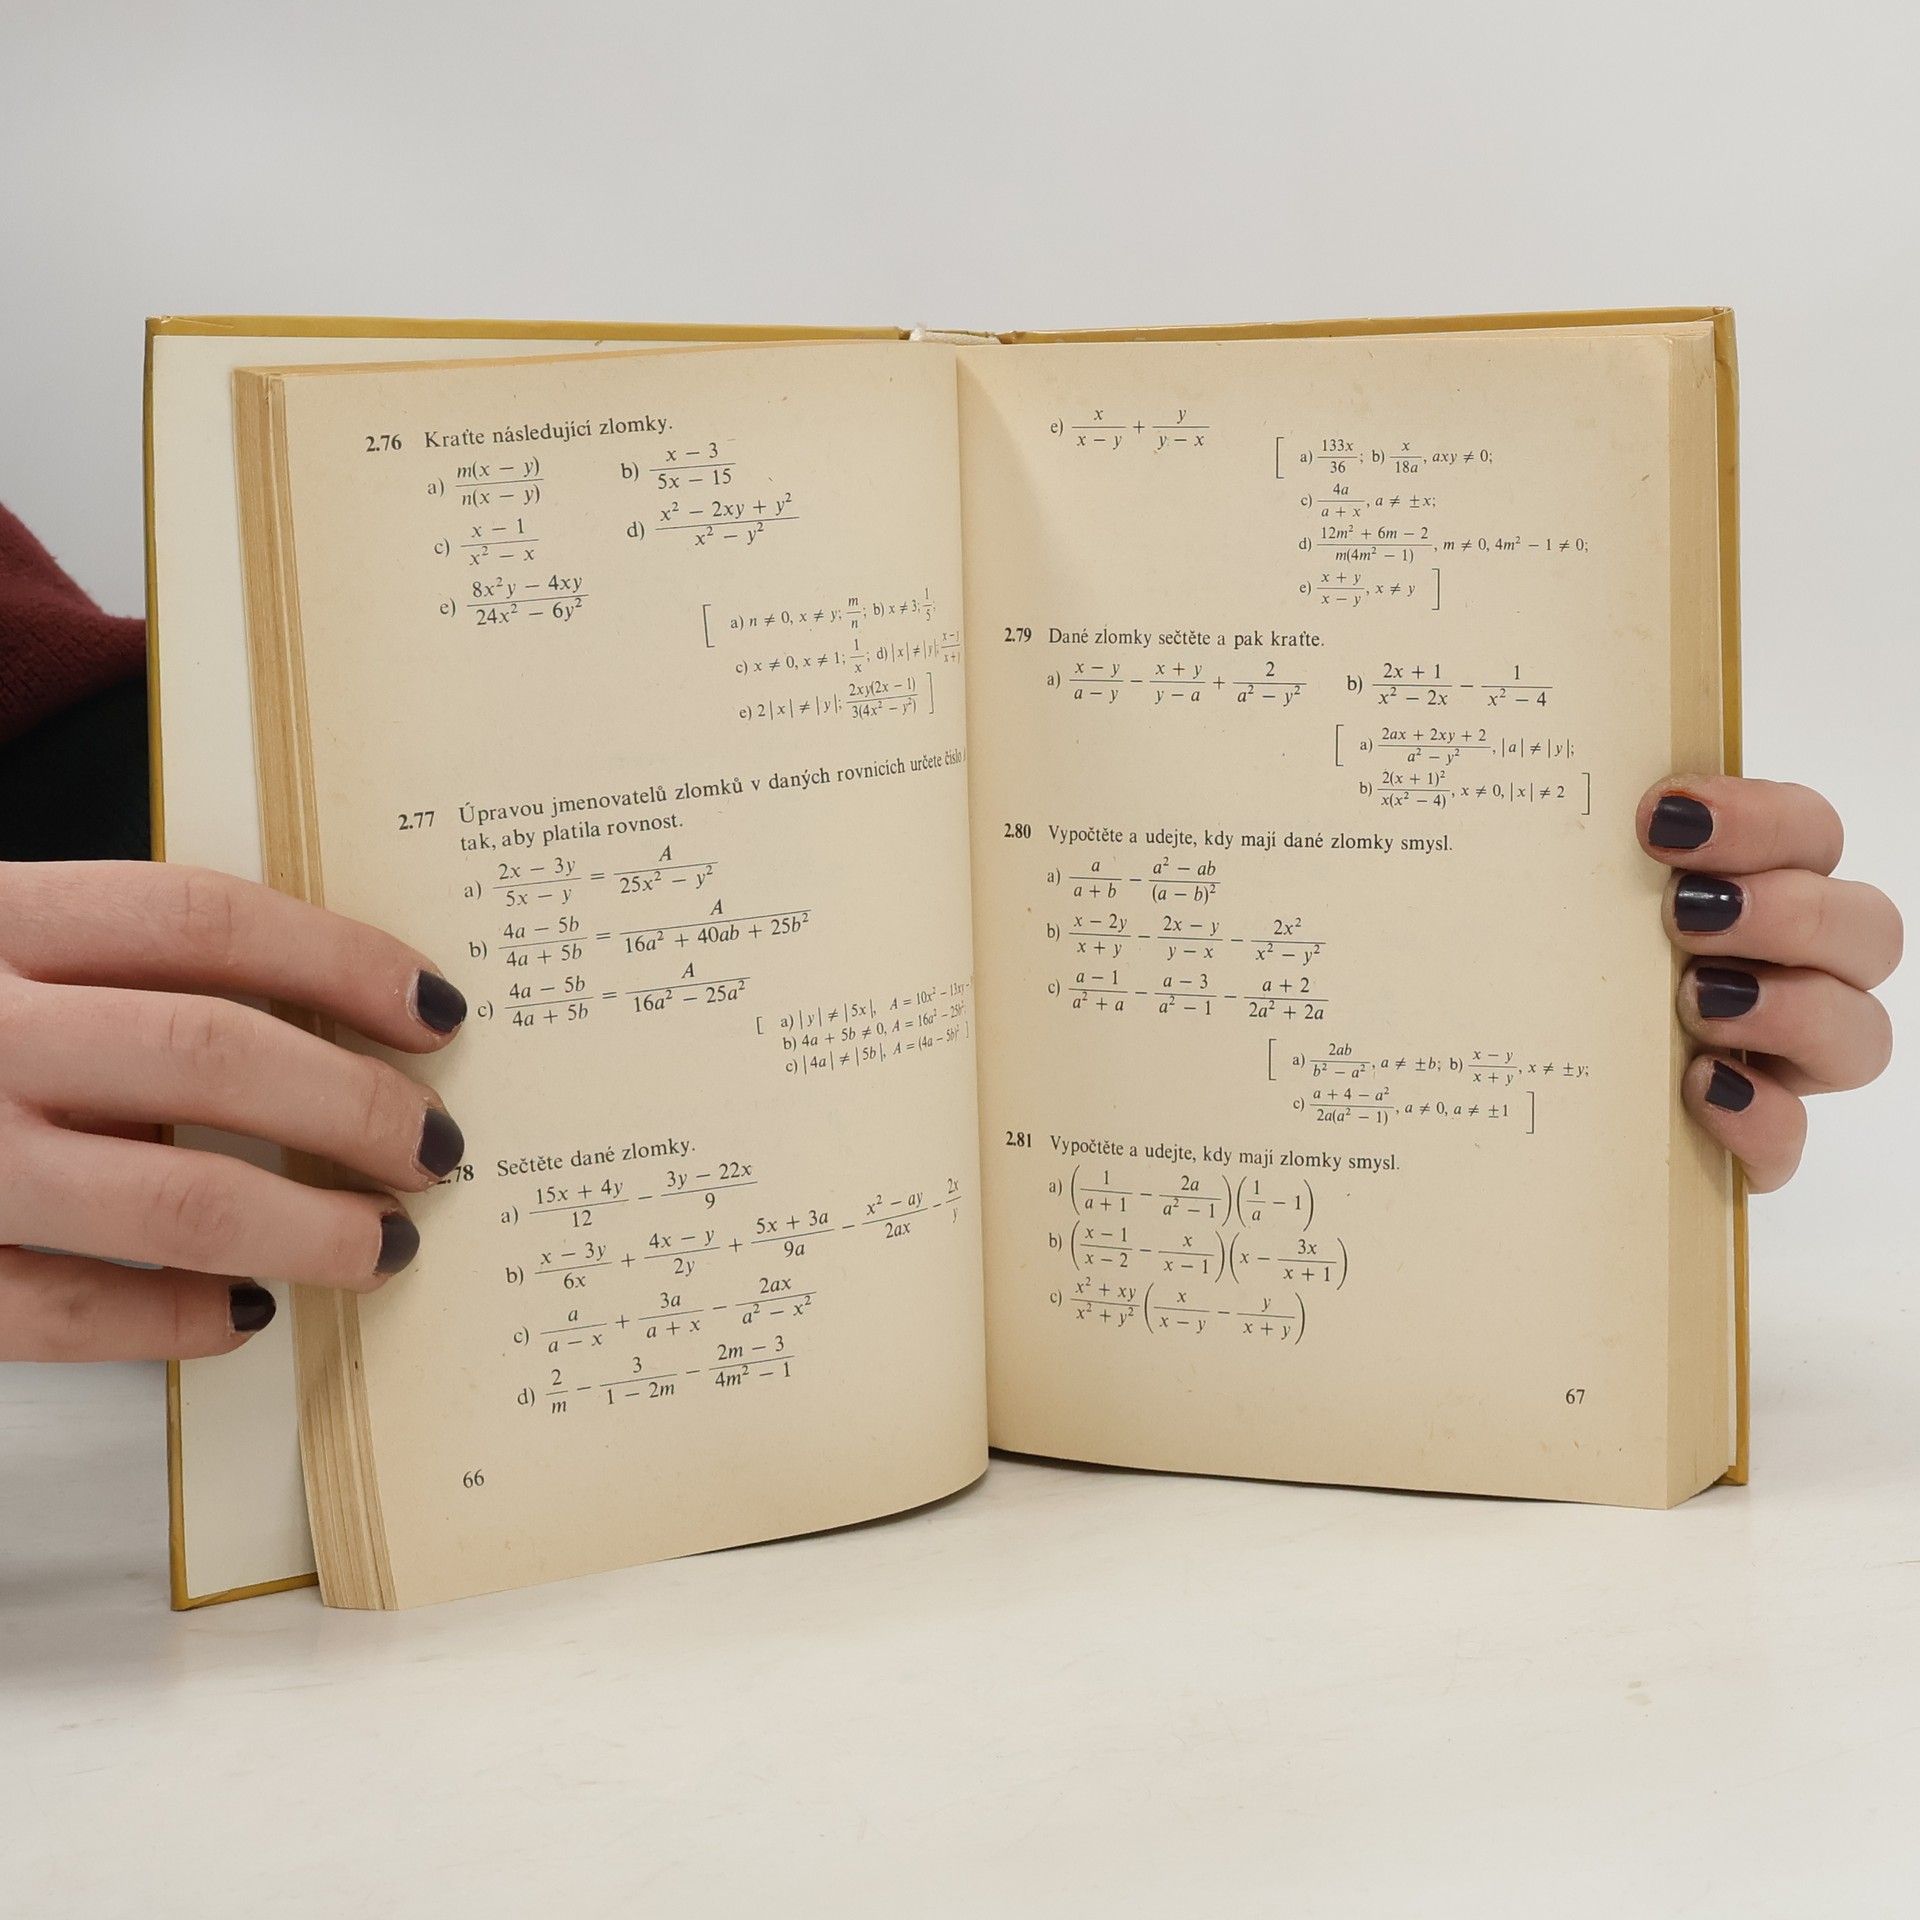 2.76 Kraťte následující zlomky.
a) m(x − y) / n(x − y) b) x − 3 / 5x − 15
c) x − 1 / x² − x d) x² − 2xy + y² / x² − y²
e) 8x²y − 4xy / 24x² − 6y²
[ a) n ≠ 0, x ≠ y; m/n; b) x ≠ 3; 1/5;
c) x ≠ 0, x ≠ 1; 1/x; d) |x| ≠ |y|;
e) 2|x| ≠ |y|; 2xy(2x − 1) / 3(4x² − y²) ]
2.77 Úpravou jmenovatelů zlomků v daných rovnicích určete číslo
tak, aby platila rovnost.
a) 2x − 3y / 5x − y = A / 25x² − y²
b) 4a − 5b / 4a + 5b = A / 16a² + 40ab + 25b²
c) 4a − 5b / 4a + 5b = A / 16a² − 25a²
[ a) |y| ≠ |5x|, A = 10x² − 13xy
b) 4a + 5b ≠ 0, A = 16a² − 25b²
c) |4a| ≠ |5b|, A = (4a − 5b)² ]
78 Sečtěte dané zlomky.
a) 15x + 4y / 12 − 3y − 22x / 9
b) x − 3y / 6x + 4x − y / 2y + 5x + 3a / 9a − x² − ay / 2ax − 2x / y
c) a / a − x + 3a / a + x − 2ax / a² − x²
d) 2 / m − 3 / 1 − 2m − 2m − 3 / 4m² − 1
66
e) x / x − y + y / y − x
[ a) 133x / 36; b) x / 18a, axy ≠ 0;
c) 4a / a + x, a ≠ ±x;
d) 12m² + 6m − 2 / m(4m² − 1), m ≠ 0, 4m² − 1 ≠ 0;
e) x + y / x − y, x ≠ y ]
2.79 Dané zlomky sečtěte a pak kraťte.
a) x − y / a − y − x + y / y − a + 2 / a² − y² b) 2x + 1 / x² − 2x − 1 / x² − 4
[ a) 2ax + 2xy + 2 / a² − y², |a| ≠ |y|;
b) 2(x + 1)² / x(x² − 4), x ≠ 0, |x| ≠ 2 ]
2.80 Vypočtěte a udejte, kdy mají dané zlomky smysl.
a) a / a + b − a² − ab / (a − b)²
b) x − 2y / x + y − 2x − y / y − x − 2x² / x² − y²
c) a − 1 / a² + a − a − 3 / a² − 1 − a + 2 / 2a² + 2a
[ a) 2ab / b² − a², a ≠ ±b; b) x − y / x + y, x ≠ ±y;
c) a + 4 − a² / 2a(a² − 1), a ≠ 0, a ≠ ±1 ]
2.81 Vypočtěte a udejte, kdy mají zlomky smysl.
a) (1 / a + 1 − 2a / a² − 1)(1 / a − 1)
b) (x − 1 / x − 2 − x / x − 1)(x − 3x / x + 1)
c) x² + xy / x² + y² (x / x − y − y / x + y)
67